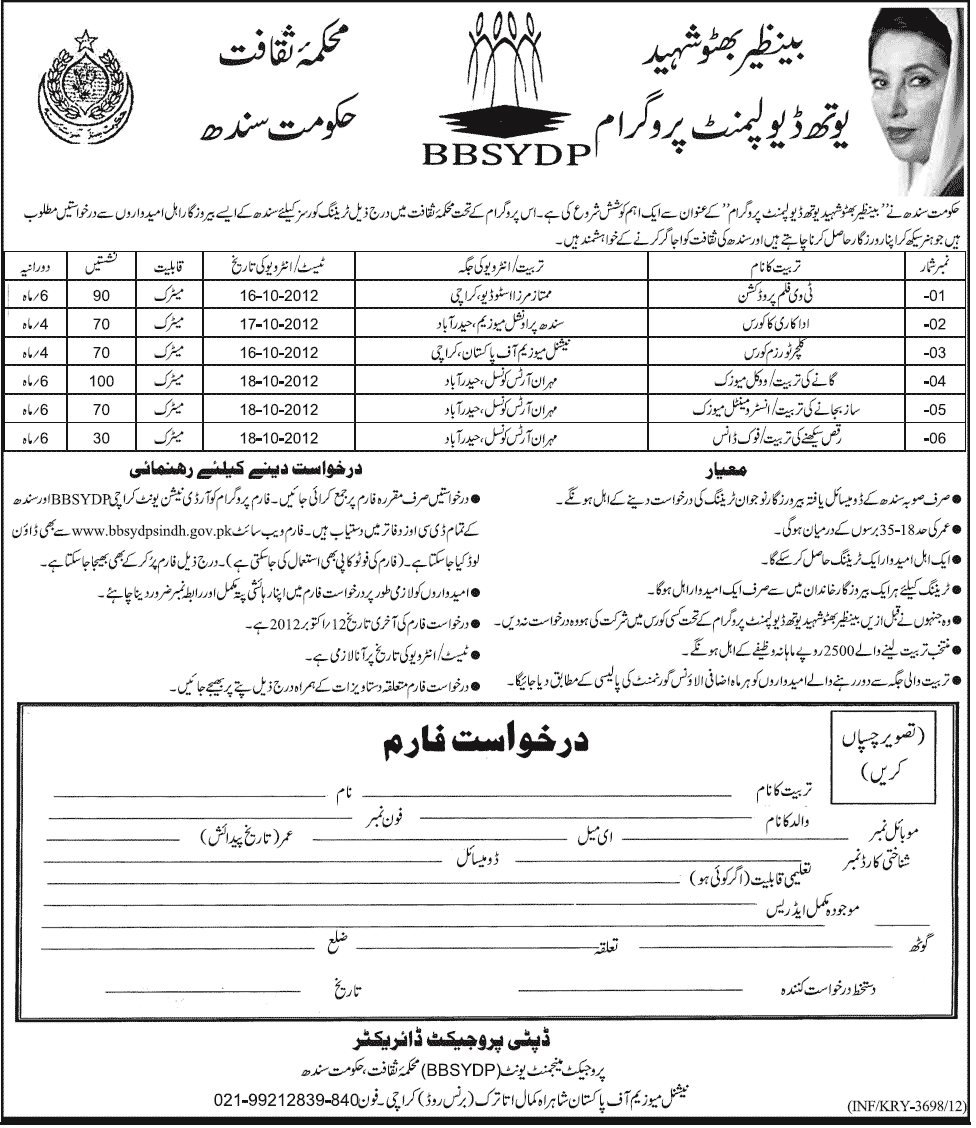 بینظیر بھٹو شہید
یوتھ ڈیولپمنٹ پروگرام
BBSYDP
محکمۂ ثقافت
حکومت سندھ
حکومت سندھ نے ’’بینظیر بھٹو شہید یوتھ ڈیولپمنٹ پروگرام‘‘ کے عنوان سے ایک اہم کوشش شروع کی ہے۔ اس پروگرام کے تحت محکمۂ ثقافت میں درج ذیل ٹریننگ کورسز کیلئے سندھ کے ایسے بیروزگار اہل امیدواروں سے درخواستیں مطلوب
ہیں جو ہنر سیکھ کر اپنا روزگار حاصل کرنا چاہتے ہیں اور سندھ کی ثقافت کو اجاگر کرنے کے خواہشمند ہیں۔
نمبر شمار تربیت کا نام تربیت/انٹرویو کی جگہ ٹیسٹ/انٹرویو کی تاریخ قابلیت نشستیں دورانیہ
01- ٹی وی فلم پروڈکشن ممتاز مرزا اسٹوڈیو، کراچی 16-10-2012 میٹرک 90 6/ماہ
02- اداکاری کا کورس سندھ پراونشل میوزیم، حیدرآباد 17-10-2012 میٹرک 70 4/ماہ
03- کلچر ٹورزم کورس نیشنل میوزیم آف پاکستان، کراچی 16-10-2012 میٹرک 70 4/ماہ
04- گانے کی تربیت/ووکل میوزک مہران آرٹس کونسل، حیدرآباد 18-10-2012 میٹرک 100 6/ماہ
05- ساز بجانے کی تربیت/انسٹرومینٹل میوزک مہران آرٹس کونسل، حیدرآباد 18-10-2012 میٹرک 70 6/ماہ
06- رقص سیکھنے کی تربیت/فوک ڈانس مہران آرٹس کونسل، حیدرآباد 18-10-2012 میٹرک 30 6/ماہ
معیار
● صرف صوبہ سندھ کے ڈومیسائل یافتہ بیروزگار نوجوان ٹریننگ کی درخواست دینے کے اہل ہونگے۔
● عمر کی حد 18-35 برسوں کے درمیان ہوگی۔
● ایک اہل امیدوار ایک ٹریننگ حاصل کر سکے گا۔
● ٹریننگ کیلئے ہر ایک بیروزگار خاندان میں سے صرف ایک امیدوار اہل ہوگا۔
● وہ جنہوں نے قبل ازیں بینظیر بھٹو شہید یوتھ ڈیولپمنٹ پروگرام کے تحت کسی کورس میں شرکت کی ہو وہ درخواست نہ دیں۔
● منتخب تربیت لینے والے 2500 روپے ماہانہ وظیفے کے اہل ہونگے۔
● تربیت والی جگہ سے دور رہنے والے امیدواروں کو ہر ماہ اضافی الاؤنس گورنمنٹ کی پالیسی کے مطابق دیا جائیگا۔
درخواست دینے کیلئے رھنمائی
● درخواستیں صرف مقررہ فارم پر جمع کرائی جائیں۔ فارم پروگرام کوآرڈی نیشن یونٹ کراچی BBSYDP اور سندھ
کے تمام ڈی سی اوز دفاتر میں دستیاب ہیں۔ فارم ویب سائٹ www.bbsydpsindh.gov.pk سے بھی ڈاؤن
لوڈ کیا جاسکتا ہے۔ (فارم کی فوٹو کاپی بھی استعمال کی جاسکتی ہے)۔ درج ذیل فارم پُر کر کے بھی بھیجا جاسکتا ہے۔
● امیدواروں کو لازمی طور پر درخواست فارم میں اپنا رہائشی پتہ مکمل اور رابطہ نمبر ضرور دینا چاہئے۔
● درخواست فارم کی آخری تاریخ 12/اکتوبر 2012 ہے۔
● ٹیسٹ/انٹرویو کی تاریخ پر آنا لازمی ہے۔
● درخواست فارم متعلقہ دستاویزات کے ہمراہ درج ذیل پتے پر بھیجے جائیں۔
درخواست فارم
(تصویر چسپاں
کریں)
تربیت کا نام نام
والد کا نام فون نمبر
موبائل نمبر ای میل عمر (تاریخ پیدائش)
شناختی کارڈ نمبر ڈومیسائل
تعلیمی قابلیت (اگر کوئی ہو)
موجودہ مکمل ایڈریس
گوٹھ تعلقہ ضلع
دستخط درخواست کنندہ تاریخ
ڈپٹی پروجیکٹ ڈائریکٹر
پروجیکٹ مینجمنٹ یونٹ (BBSYDP) محکمۂ ثقافت، حکومت سندھ
نیشنل میوزیم آف پاکستان شاہراہ کمال اتاترک (برنس روڈ) کراچی۔ فون 021-99212839-840
(INF/KRY-3698/12)